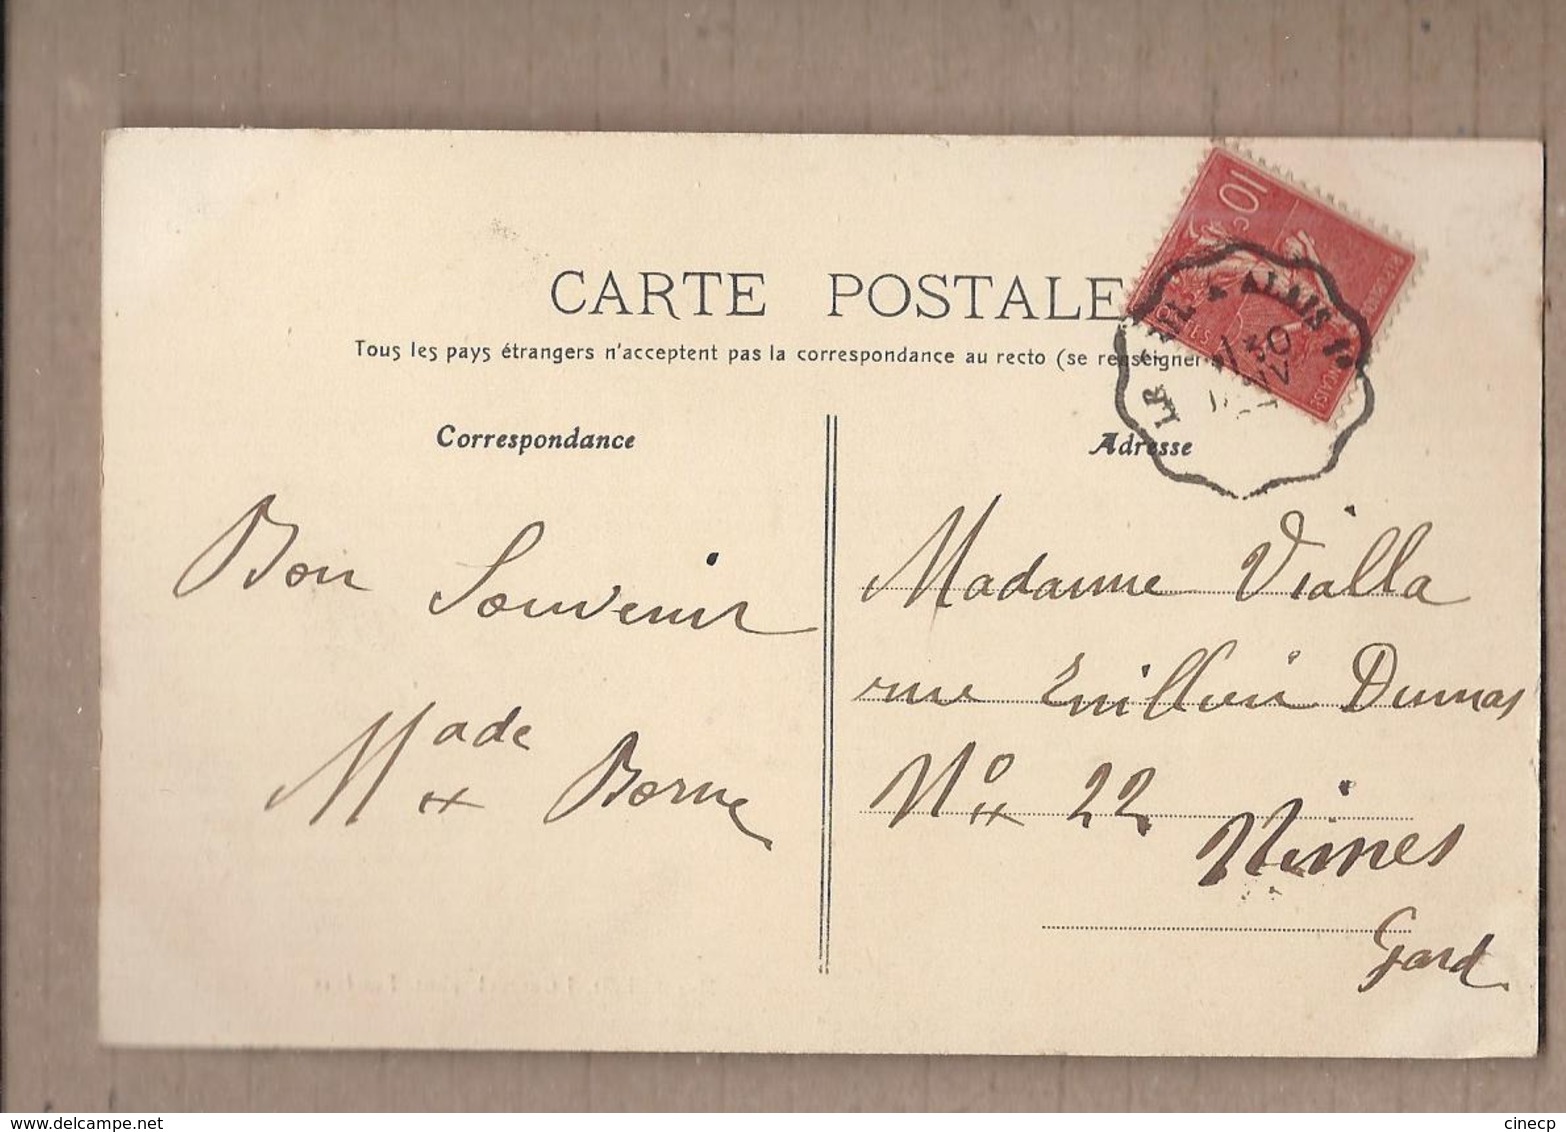 CARTE POSTALE
Tous les pays étrangers n'acceptent pas la correspondance au recto (se renseigner
Correspondance
Adresse
10 c
ALAIS 1°
30
Bon Souvenir
Made Borne
Madame Vialla
rue Dumas
No 22
Nimes
Gard
cinecp